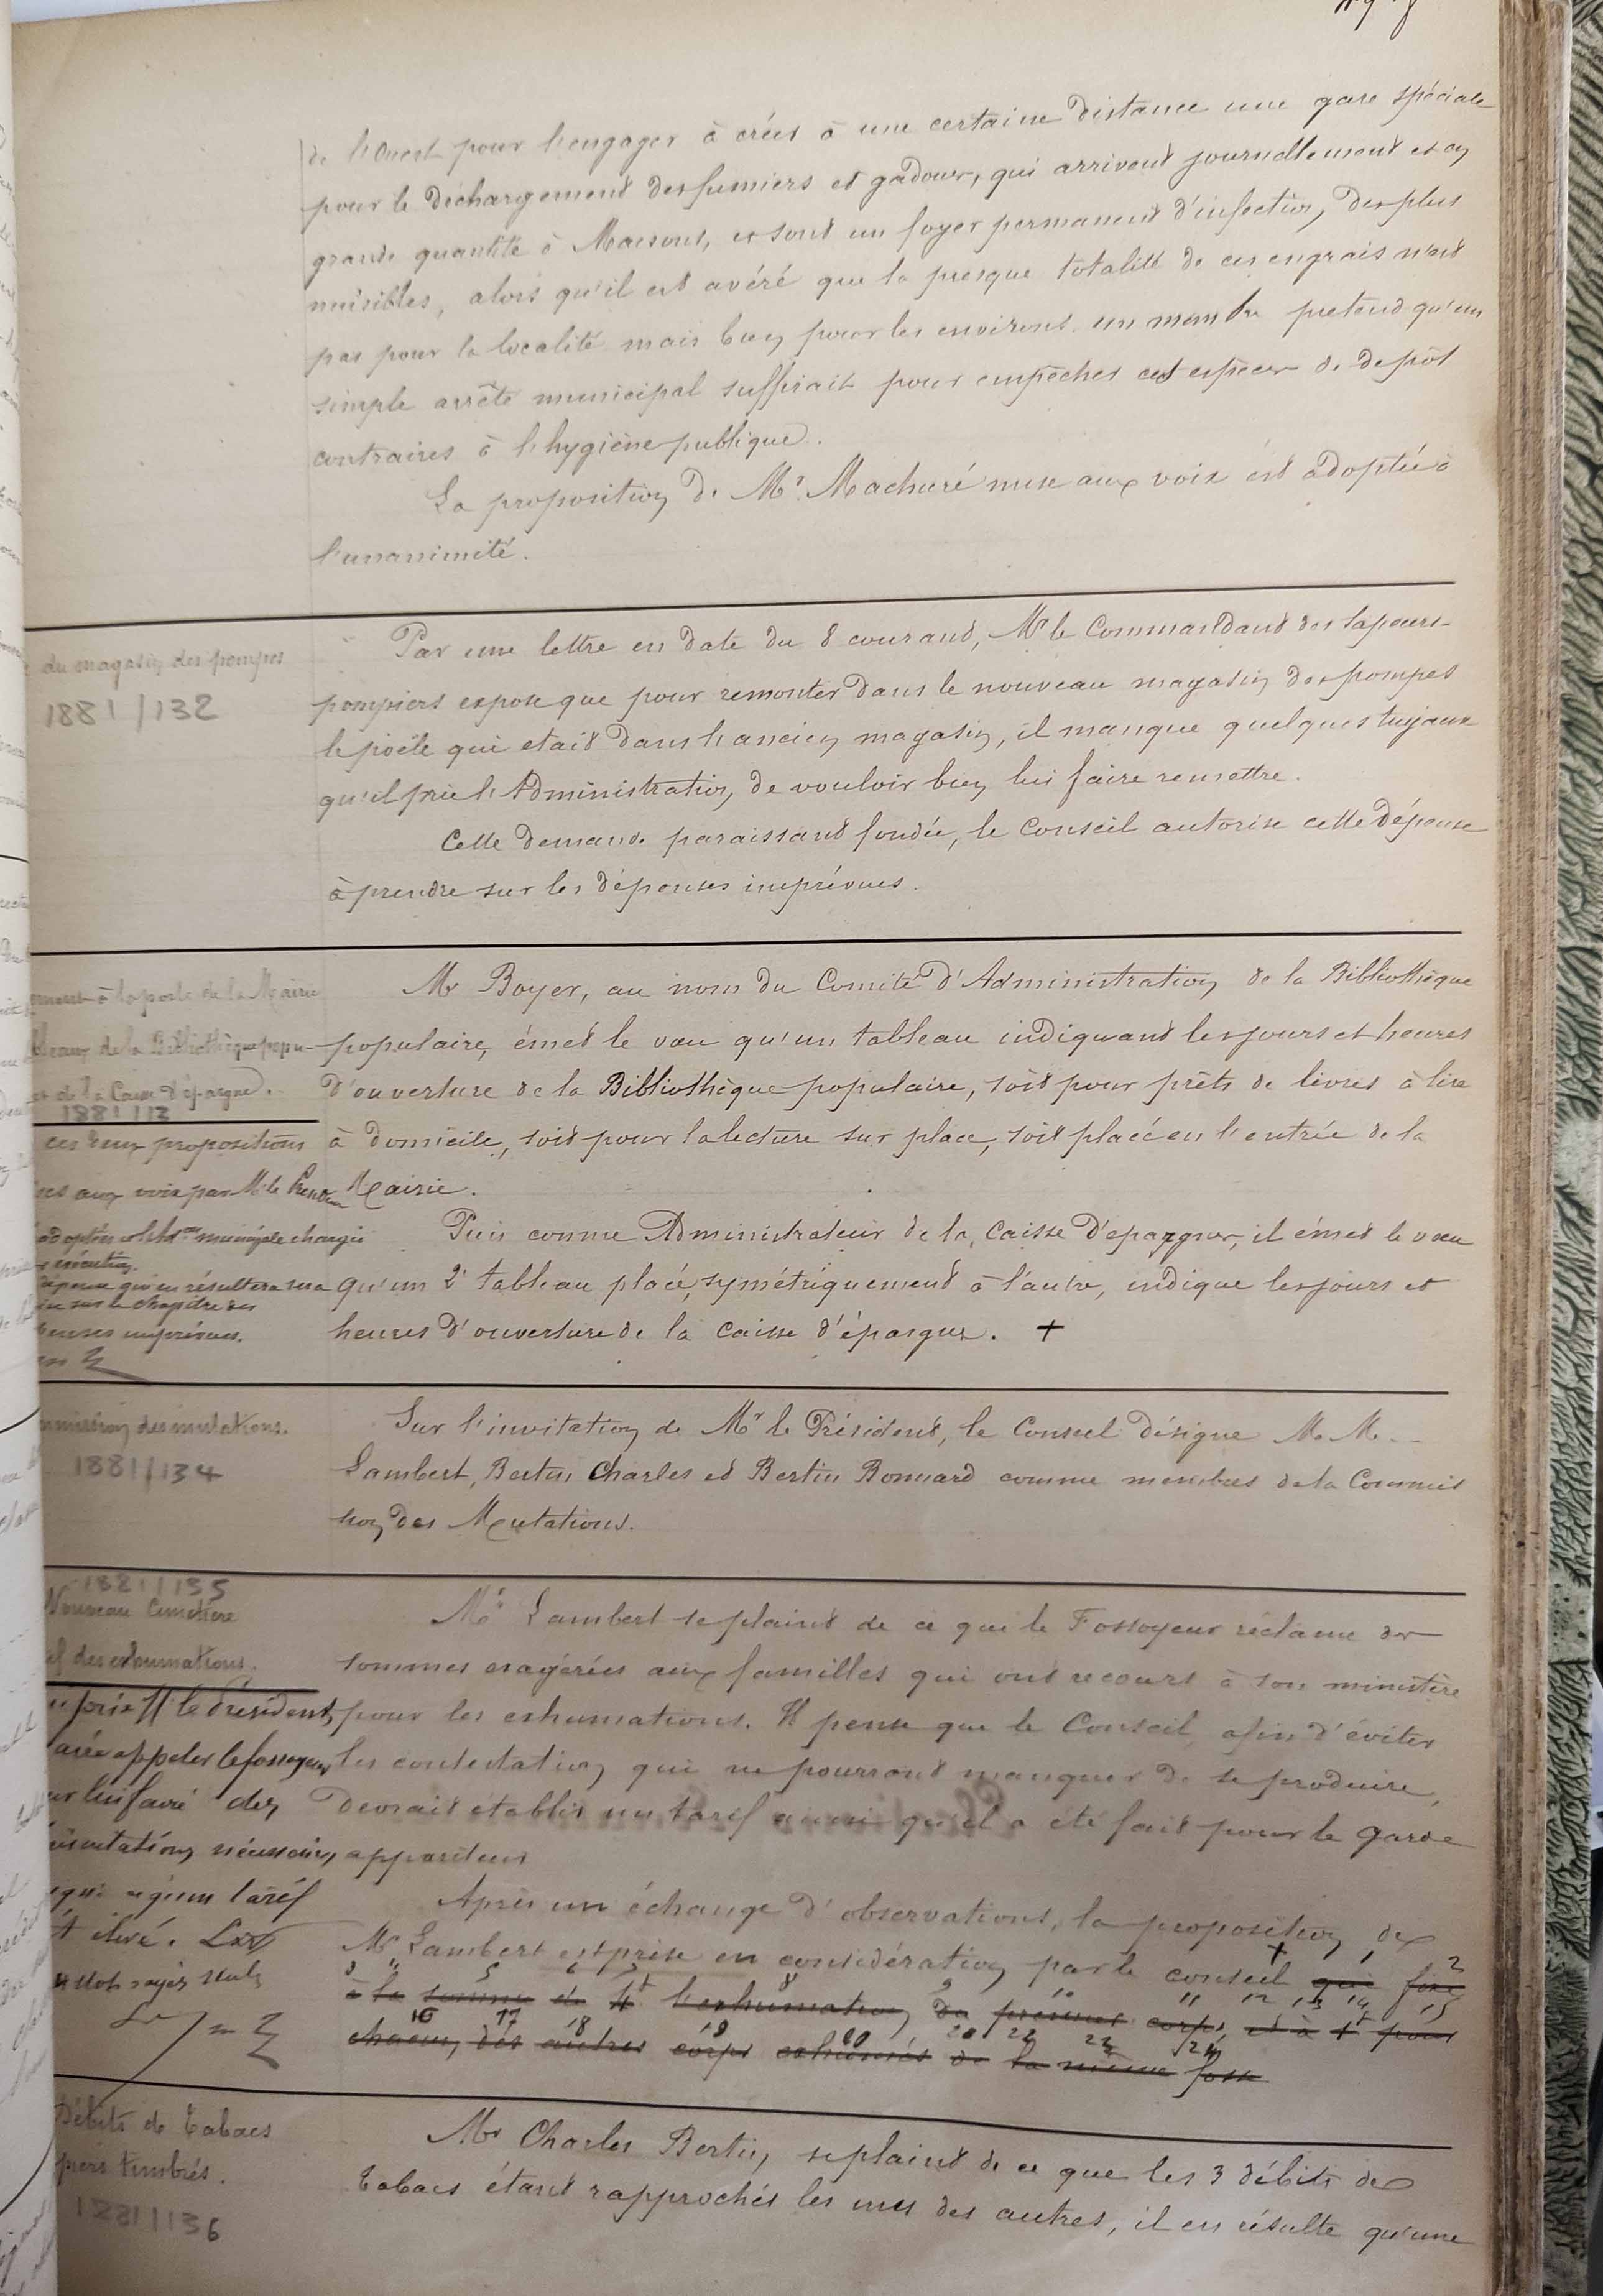 de l'Ouest pour l'engager à créer à une certaine distance une gare spéciale
pour le déchargement des fumiers et gadoues, qui arrivent journellement et en
grande quantité à Maisons, et sont un foyer permanent d'infection, des plus
nuisibles, alors qu'il est avéré que la presque totalité de ces engrais n'est
pas pour la localité mais bien pour les environs. un membre pretend qu'un
simple arrêté municipal suffirait pour empêcher ces espèces de depôt
contraires à l'hygiène publique.
La proposition de Mr. Machuré mise aux voix est adoptée à
l'unanimité.
du magasin des pompes
1881/132
Par une lettre en date du 8 courant, Mr le Commandant des Sapeurs-
pompiers expose que pour remonter dans le nouveau magasin des pompes
le poële qui etait dans l'ancien magasin, il manque quelques tuyaux
qu'il prie l'Administration de vouloir bien lui faire remettre.
Cette demande paraissant fondée, le Conseil autorise cette dépense
à prendre sur les dépenses imprévues.
à la porte de la Mairie
de la Bibliothèque popu-
et de la Caisse d'épargne.
1881/13
Mr Boyer, au nom du Comité d'Administration de la Bibliothèque
populaire, émet le vœu qu'un tableau indiquant les jours et heures
d'ouverture de la Bibliothèque populaire, soit pour prêts de livres à lire
à domicile, soit pour la lecture sur place, soit placé en l'entrée de la
Mairie.
Puis comme Administrateur de la Caisse d'epargne, il émet le vœu
qu'un 2e tableau placé symétriquement à l'autre, indique les jours et
heures d'ouverture de la Caisse d'épargne. +
ces deux propositions
aux voix par Mr le Président
municipale chargée
exécution.
qui en résultera sera
sur le chapitre des
imprévues.
des mutations.
1881/134
Sur l'invitation de Mr le Président, le Conseil désigne M.M.
Lambert, Bertin Charles et Bertin Bonnard comme membres de la Commis
sion des Mutations.
1881/135
Nouveau Cimetière
des exhumations.
Mr Lambert se plaint de ce que le Fossoyeur réclame des
sommes exagérées aux familles qui ont recours à son ministère
pour les exhumations. Il pense que le Conseil, afin d'éviter
les contestations qui ne pourront manquer de se produire,
devrait etablir un tarif ainsi qu'il a été fait pour le garde
appariteur
Après un échange d'observations, la proposition de
Mr Lambert est prise en considération par le conseil + qui fixe
à la somme de 4f l'exhumation du premier corps, et à 1f pour
chacun des autres corps exhumés de la même fosse
prie M le Président,
appeler le fossoyeur
lui faire des
nécessaires,
tarif
élevé.
mots rayés nuls
Débits de Tabacs
timbrés.
1881/136
Mr Charles Bertin se plaint de ce que les 3 débits de
Tabacs étant rapprochés les uns des autres, il en résulte qu'une